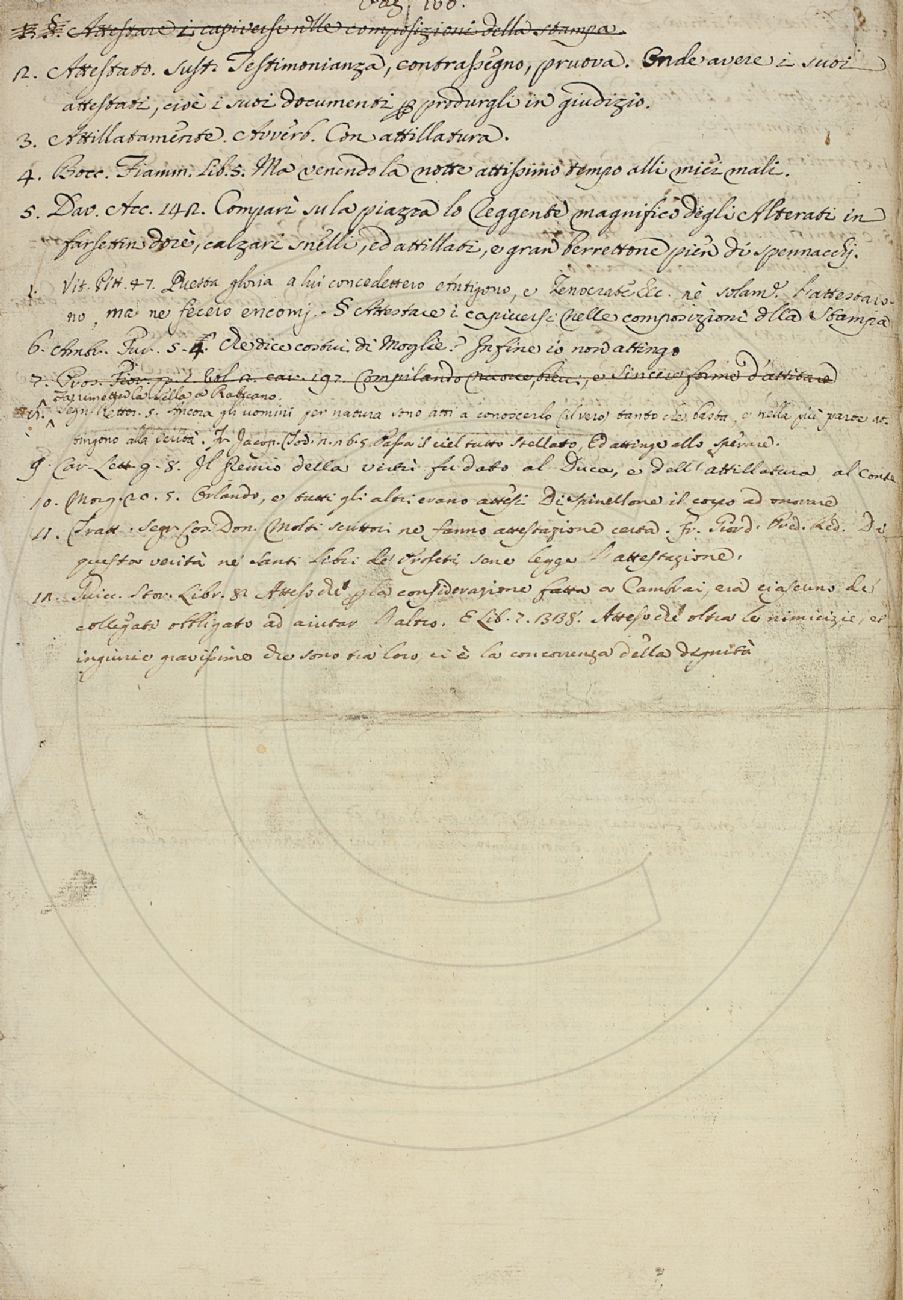 Pag. 100.
1. §. Attestare i capiversi nelle composizioni della stampa.
2. Attestato. Sust. Testimonianza, contrassegno, pruova. Onde avere i suoi
attestati, cioè i suoi documenti p produrgli in giudizio.
3. Attillatamente. Avverb. Con attillatura.
4. Bocc. Fiamm. Lib. 5. Ma venendo la notte attissimo tempo alli miei mali.
5. Dav. Acc. 142. Comparì su la piazza lo Reggente magnifico degli Alterati in
farsettin dorè, calzari snelli, ed attillati, e gran berrettone pien di spennacchj.
1. Vit. Pitt. 47. Questa gloria a lui concedettero Antigono, e Zenocrate &c. nè solam.e l'attestaro-
no, ma ne fecero encomj. § Attestare i capiversi nelle composizioni dlla Stampa
6. Ambr. Fur. 5. 4. Che dice costui di Moglie? Infine io non attingo
7. Pros. Fior. p. 1. Vol. 2. car. 197. Compilando nuove, e sincere forme d'attitare
la villa a
Segn. Rettor. 5. Ancora gli uomini per natura sono atti a conoscerlo (il vero) tanto che basta, e nella più parte at-
tingono alla verità. Fr. Jacop. Tod. 2. 26. 5. Passa il ciel tutto stellato, Ed attinge allo sperare.
9. Car. Lett. 9. 8. Il Premio della virtù fu dato al Duca, e dell'attillatura al Conte
10. Morg. 20. 5. Orlando, e tutti gli altri erano attesi Di Spinellone il corpo ad onorare
11. Tratt. Segr. Cos. Don. Molti scrittori ne fanno attestazione certa. Fr. Giord. Pred. Red. Di
questa verità ne' santi libri de' Profeti sene legge l'attestazione.
12. Guicc. Stor. Libr. 8. Atteso che p la considerazione fatta a Cambrai, era ciascuno de'
collegati obbligato ad aiutar l'altro. E Lib. 7. 338. Atteso che oltra le nimicizie, et
ingiurie gravissime che sono tra loro ci è la concorrenza della dignità